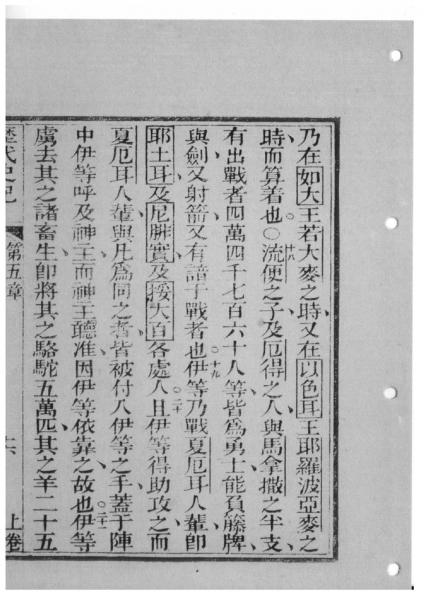 乃在如大王若大麥之時又在以色耳王耶羅波亞麥之
時而算着也○十八流便之子及厄得之人與馬拿撒之半支
有出戰者四萬四千七百六十人等皆為勇士能負籐牌
與劍又射箭又有諳于戰者也○十九伊等乃戰夏厄耳人輩即
耶土耳及尼腓實及挼大百各處人○二十且伊等得助攻之而
夏厄耳人輩與凡為同之者皆被付入伊等之手蓋于陣
中伊等呼及神主而神主聽准因伊等依靠之故也○二十一伊等
虜去其之諸畜生即將其之駱駝五萬匹其之羊二十五
歷代史紀 第五章 上卷